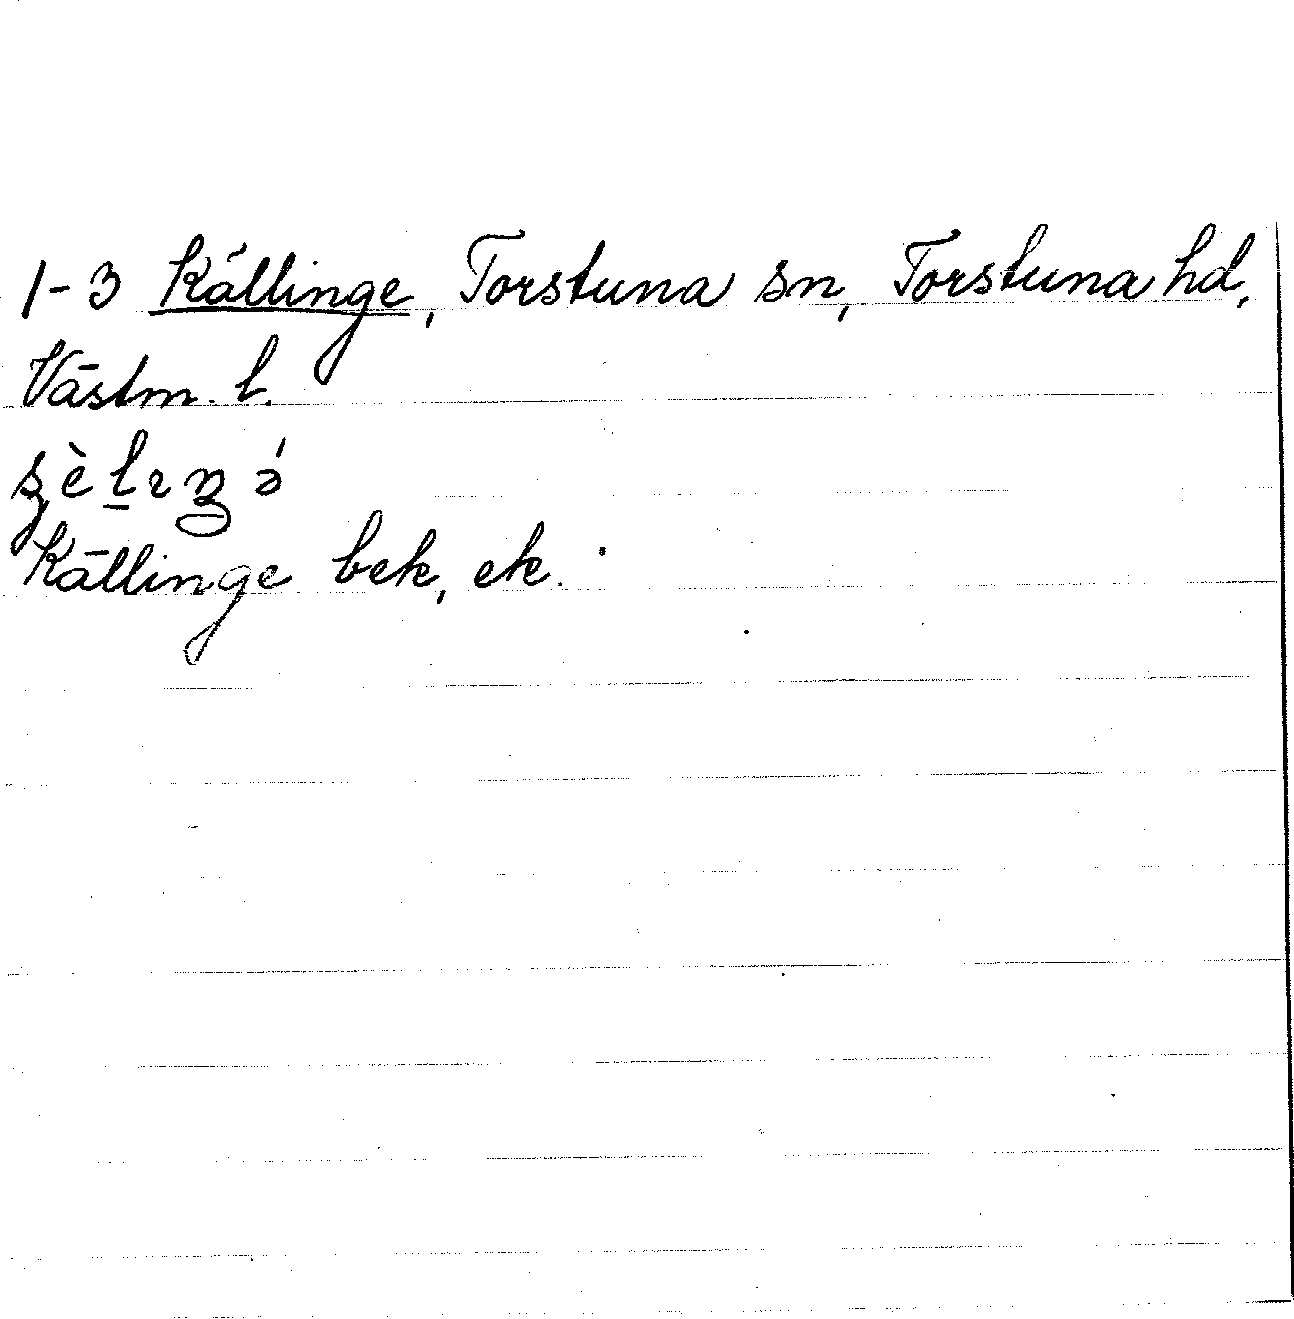 1-3 Källinge, Torstuna sn, Torstuna hd,
Västm. l.
Källinge bek, ek.